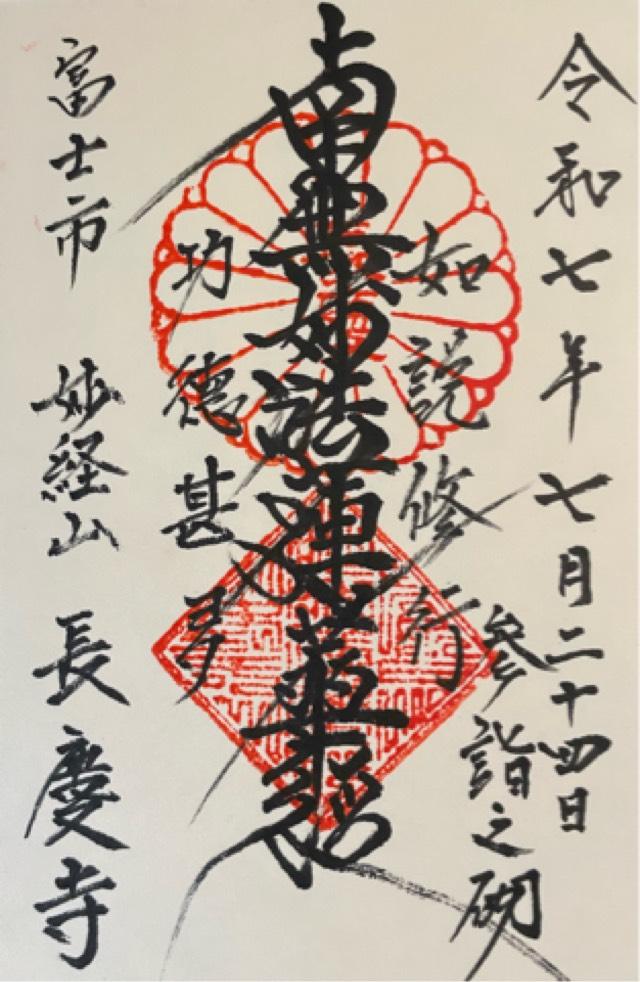 令和七年七月二十四日
参詣之砌
如説修行
南無妙法蓮華経
功徳甚多
富士市 妙経山 長慶寺